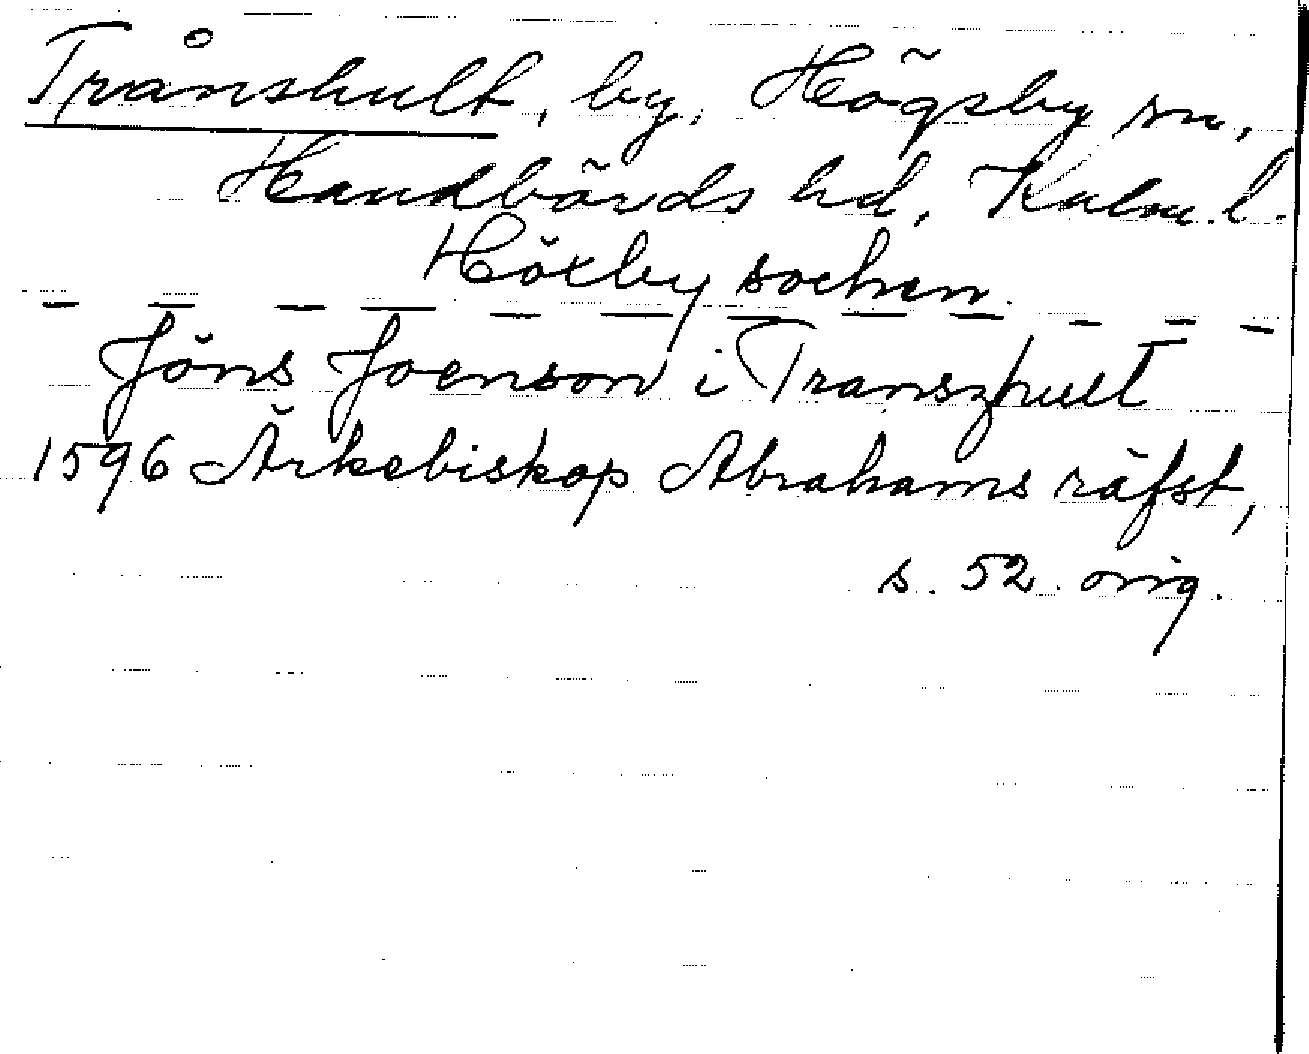 Trånshult, by, Högsby sn,
Handbörds hd, Kalm. l.
Höxby sochen.
Jöns Joenson i Transzhult
1596 Ärkebiskop Abrahams räfst,
s. 52 orig.